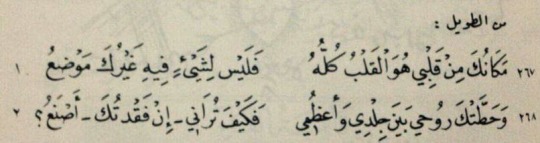 من الطويل :
٢٦٧ مَكَانُكَ مِنْ قَلْبِي هُوَ الْقَلْبُ كُلُّهُ فَلَيْسَ لِشَيْءٍ فِيهِ غَيْرُكَ مَوْضِعُ ١
٢٦٨ وَحَطَّتْكَ رُوحِي بَيْنَ جِلْدِي وَأَعْظُمِي فَكَيْفَ تُرَانِي - إِنْ فَقَدْتُكَ - أَصْنَعُ؟ ٢